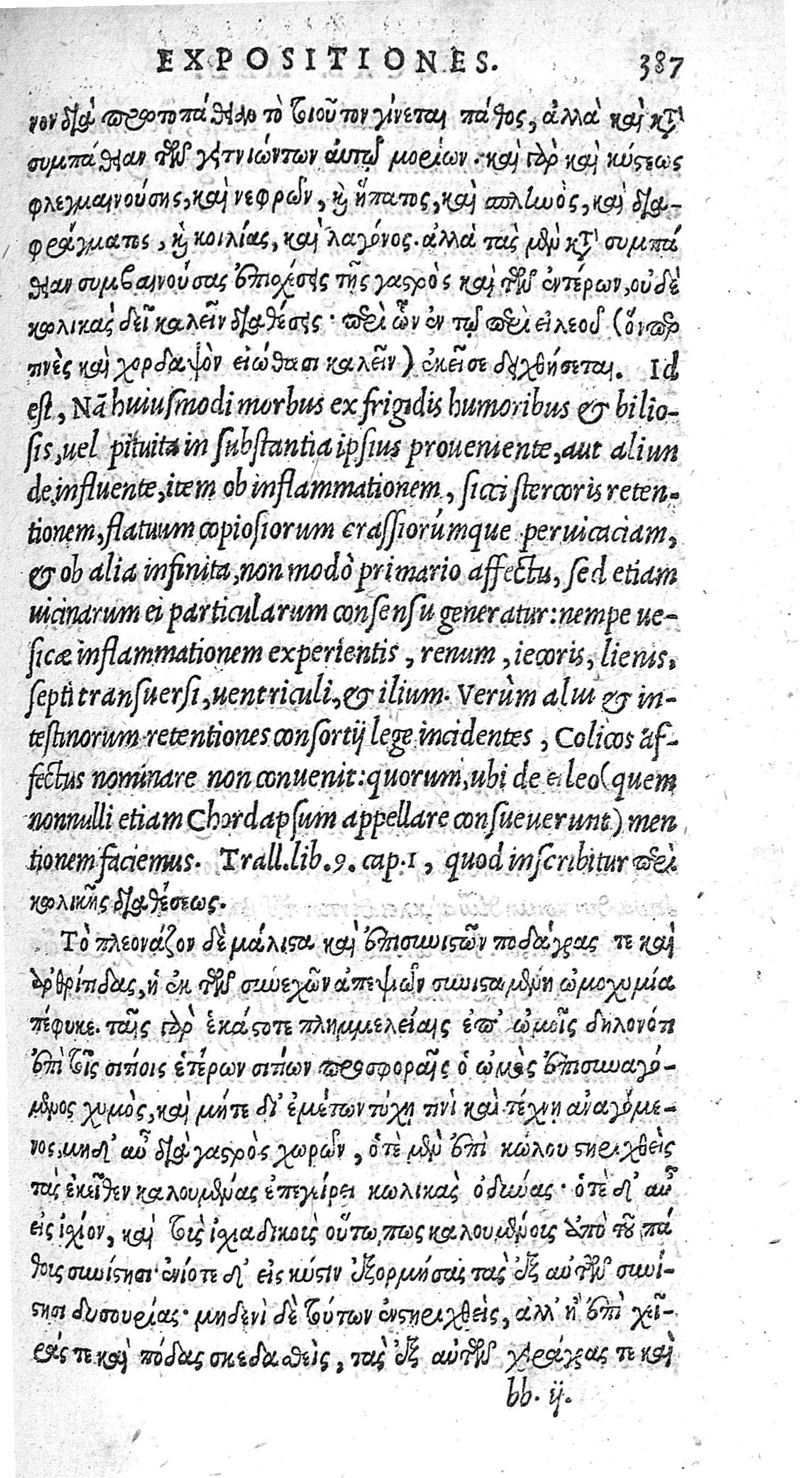 EXPOSITIONES. 387
νον διὰ πρωτοπάθειαν τὸ τοιοῦτον γίνεται πάθος, ἀλλὰ καὶ κτ'
συμπάθειαν τῶν γειτνιώντων αὐτῷ μορίων. καὶ γὰρ καὶ κύσεως
φλεγμαινούσης, καὶ νεφρῶν, καὶ ἥπατος, καὶ σπληνὸς, καὶ δια-
φράγματος, καὶ κοιλίας, καὶ λαγόνος. ἀλλὰ τὰς μὲν κτ' συμπά
θειαν συμβαινούσας ἐποχέσεις τῆς γαστρὸς καὶ τῶν ἐντέρων, οὐδὲ
κωλικὰς δεῖ καλεῖν διαθέσεις· περὶ ὧν ἐν τῷ περὶ εἰλεοῦ (ὅνπερ
τινὲς καὶ χορδαψὸν εἰώθασι καλεῖν) ἐκεῖσε δειχθήσεται. Id
est, Nã huiusmodi morbus ex frigidis humoribus & bilio-
sis, uel pituita in substantia ipsius proueniente, aut aliun
de influente, item ob inflammationem, sicci stercoris reten-
tionem, flatuum copiosiorum crassiorúmque peruicaciam,
& ob alia infinita, non modò primario affectu, sed etiam
uicinarum ei particularum consensu generatur: nempe ue-
sicæ inflammationem experientis, renum, iecoris, lienis,
septi transuersi, uentriculi, & ilium. Verùm alui & in-
testinorum retentiones consortij lege incidentes, Colicos af-
fectus nominare non conuenit: quorum, ubi de ileo (quem
nonnulli etiam Chordapsum appellare consueuerunt) men
tionem faciemus. Trall. lib. 9. cap. 1, quod inscribitur περὶ
κωλικῆς διαθέσεως.
Τὸ πλεονάζον δὲ μάλιστα καὶ ἐπισυνιστῶν ποδάγρας τε καὶ
ἀρθρίτιδας, ἡ ἐκ τῶν συνεχῶν ἀπεψιῶν συνισταμένη ὠμοχυμία
πέφυκε. ταῖς γὰρ ἑκάστοτε πλημμελείαις ἐπ' ὠμοῖς δηλονότι
ἐπὶ τοῖς σιτίοις ἑτέρων σιτίων προσφοραῖς ὁ ὠμὸς ἐπισυναγό-
μενος χυμὸς, καὶ μήτε δι' ἐμέτων τύχῃ τινὶ καὶ τέχνῃ ἀναγόμε-
νος, μήδ' αὖ διὰ γαστρὸς χωρῶν, ὁτὲ μὲν ἐπὶ κώλου στηριχθεὶς
τὰς ἐκεῖθεν καλουμένας ἐπεγείρει κωλικὰς ὀδύνας· ὁτὲ δ' αὖ
εἰς ἰσχίον, καὶ τοῖς ἰσχιαδικοῖς οὕτω πως καλουμένοις ἀπὸ τοῦ πά
θοις συνίστησι· ἐνίοτε δ' εἰς κύστιν ἐξορμήσας τὰς ἐξ αὐτῶν συνί-
στησι δυσουρίας· μηδενὶ δὲ τούτων ἐνστηριχθεὶς, ἀλλ' ἢ ἐπὶ χεῖ-
ράς τε καὶ πόδας σκεδασθεὶς, τὰς ἐξ αὐτῶν χειράγρας τε καὶ
bb. ij.